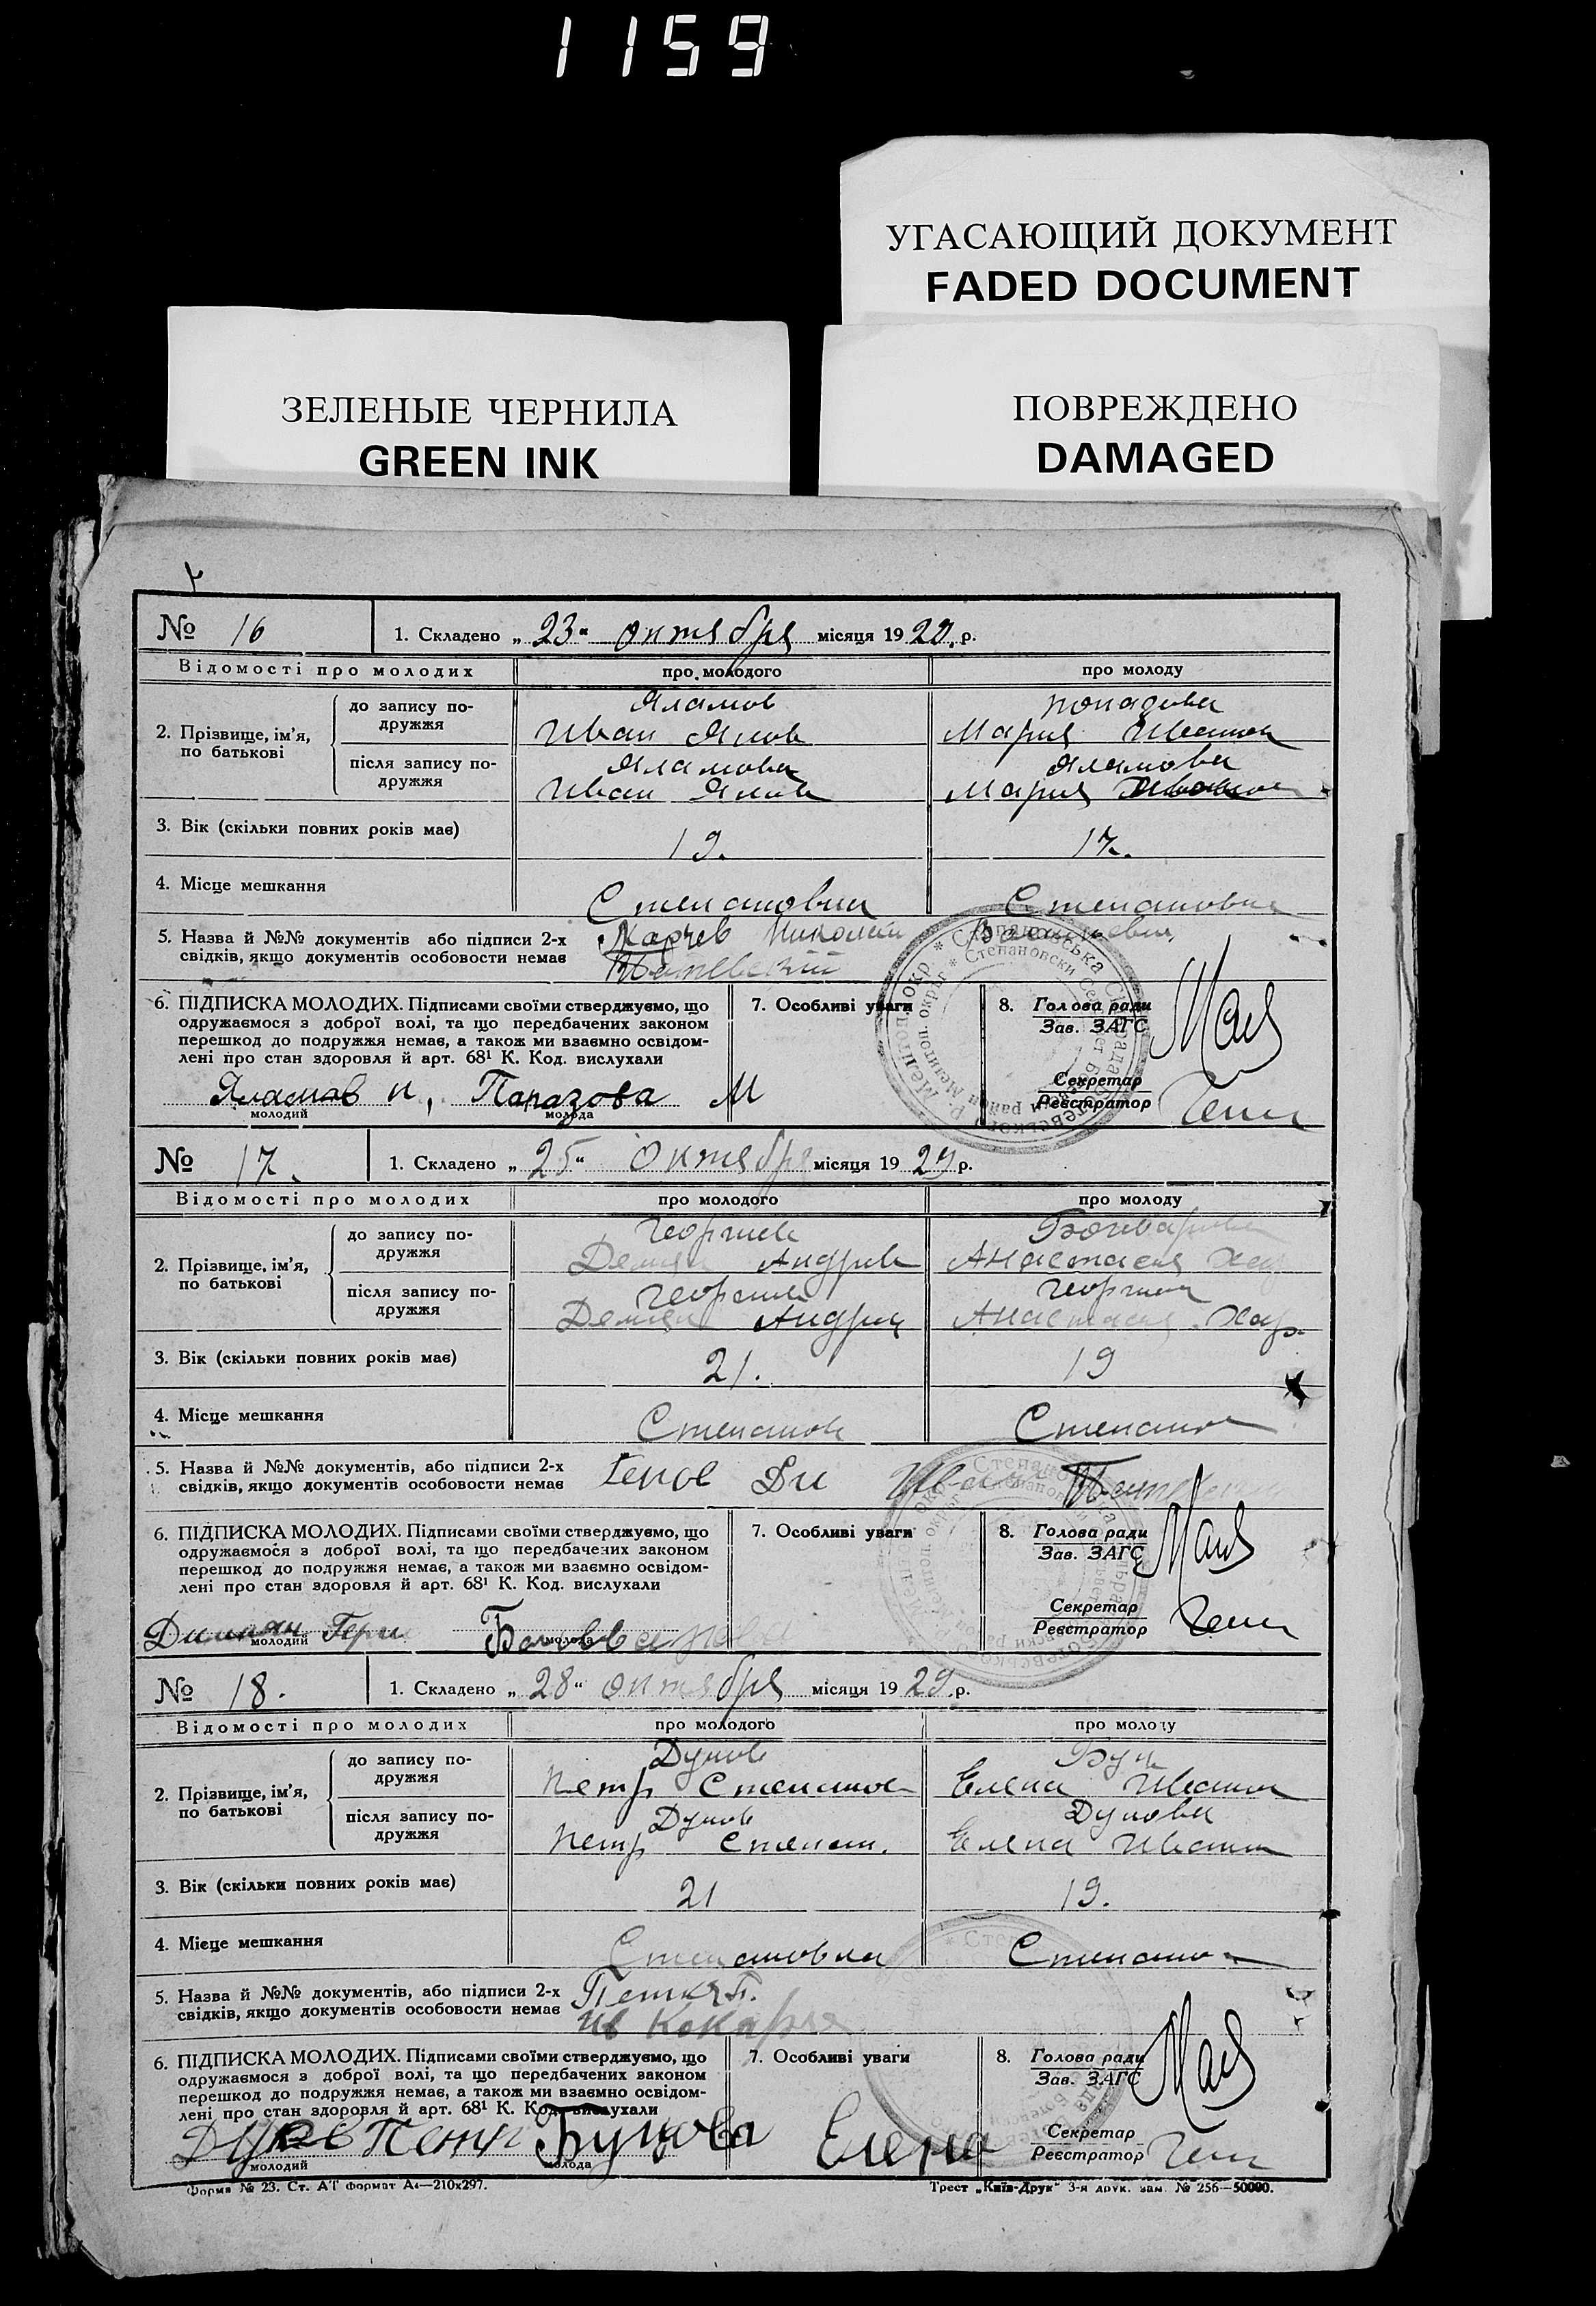 1159
УГАСАЮЩИЙ ДОКУМЕНТ
FADED DOCUMENT
ЗЕЛЕНЫЕ ЧЕРНИЛА
GREEN INK
ПОВРЕЖДЕНО
DAMAGED
№ 16 1. Складено „ 23 “ октября місяця 1929 р.
Відомості про молодих про молодого про молоду
2. Прізвище, ім’я, по батькові
до запису подружжя
Яламов
Иван Яков Мария Иванов
після запису подружжя
Яламова Яламова
Иван Яков Мария
3. Вік (скільки повних років має) 19. 17.
4. Місце мешкання Степановка Степановка
5. Назва й №№ документів або підписи 2-х Карчев Николай
свідків, якщо документів особовости немає
6. ПІДПИСКА МОЛОДИХ. Підписами своїми стверджуємо, що
одружаємося з доброї волі, та що передбачених законом
перешкод до подружжя немає, а також ми взаємно освідом-
лені про стан здоровля й арт. 68¹ К. Код. вислухали
7. Особливі уваги
8. Голова ради
Зав. ЗАГС
Секретар
Реєстратор
Яламов И, Папазова М
молодий молода
№ 17. 1. Складено „ 25 “ Октября місяця 1929 р.
Відомості про молодих про молодого про молоду
2. Прізвище, ім’я, по батькові
до запису подружжя
Георгиев
Демян Андрие Анастасия Хар
після запису подружжя
Георгиев Георгиев
Демян Андрие Анастасия Хар.
3. Вік (скільки повних років має) 21. 19
4. Місце мешкання Степанов Степанов
5. Назва й №№ документів, або підписи 2-х Генов Ди Иван
свідків, якщо документів особовости немає
6. ПІДПИСКА МОЛОДИХ. Підписами своїми стверджуємо, що
одружаємося з доброї волі, та що передбачених законом
перешкод до подружжя немає, а також ми взаємно освідом-
лені про стан здоровля й арт. 68¹ К. Код. вислухали
7. Особливі уваги
8. Голова ради
Зав. ЗАГС
Секретар
Реєстратор
молодий молода
№ 18. 1. Складено „ 28 “ октября місяця 1929 р.
Відомості про молодих про молодого про молоду
2. Прізвище, ім’я, по батькові
до запису подружжя
Дуков
Петр Степанов Елена Иванов
після запису подружжя
Дуков Дукова
Петр Степан. Елена Иванов
3. Вік (скільки повних років має) 21 19.
4. Місце мешкання Степановка Степанов
5. Назва й №№ документів, або підписи 2-х
свідків, якщо документів особовости немає
6. ПІДПИСКА МОЛОДИХ. Підписами своїми стверджуємо, що
одружаємося з доброї волі, та що передбачених законом
перешкод до подружжя немає, а також ми взаємно освідом-
лені про стан здоровля й арт. 68¹ К. Код. вислухали
7. Особливі уваги
8. Голова ради
Зав. ЗАГС
Секретар
Реєстратор
Петр Елена
молодий молода
Форма № 23. Ст. АТ формат А4—210x297. Трест „Київ-Друк“ 3-я друк. зам. № 256—50000.